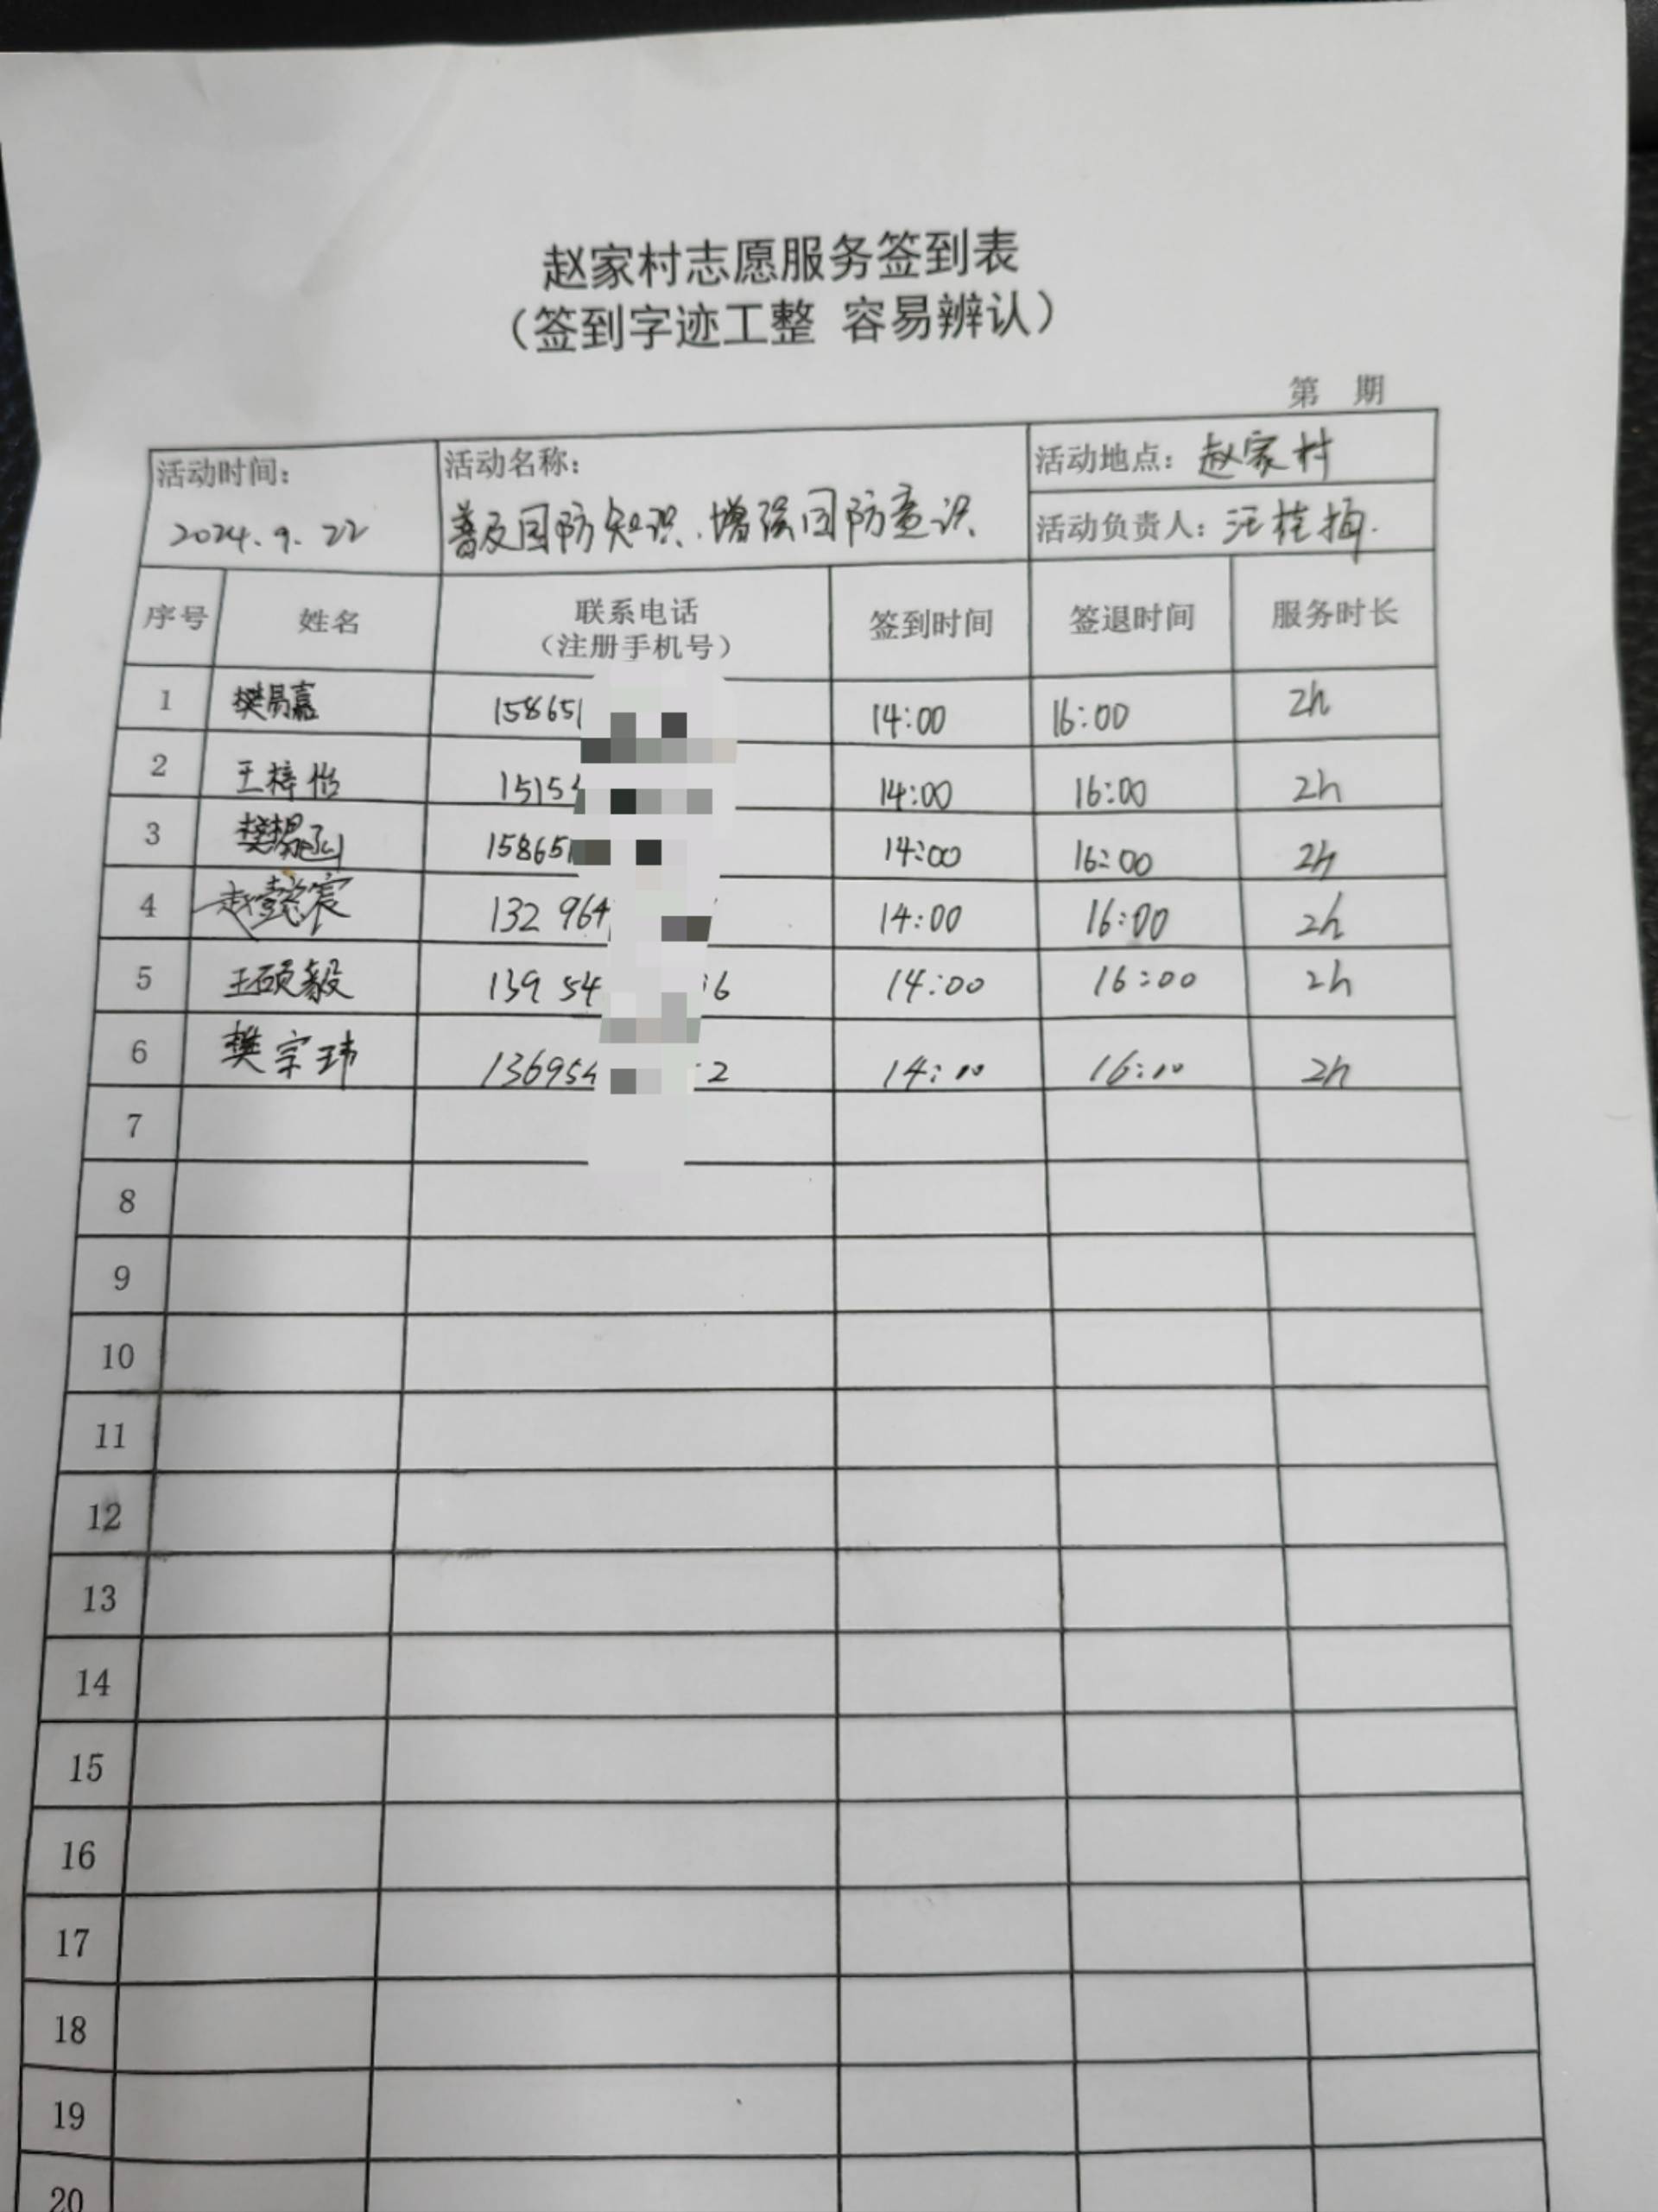 赵家村志愿服务签到表
（签到字迹工整 容易辨认）
第 期
活动时间：
2024.9.22
活动名称：
普及国防知识、增强国防意识
活动地点：赵家村
活动负责人：汪桂梅
序号 姓名 联系电话（注册手机号） 签到时间 签退时间 服务时长
1 樊易嘉 158651 14:00 16:00 2h
2 王梓怡 1515 14:00 16:00 2h
3 158651 14:00 16:00 2h
4 赵懿宸 132 964 14:00 16:00 2h
5 王硕毅 139 54 6 14:00 16:00 2h
6 樊宗玮 13695 2 14:00 16:00 2h
7
8
9
10
11
12
13
14
15
16
17
18
19
20